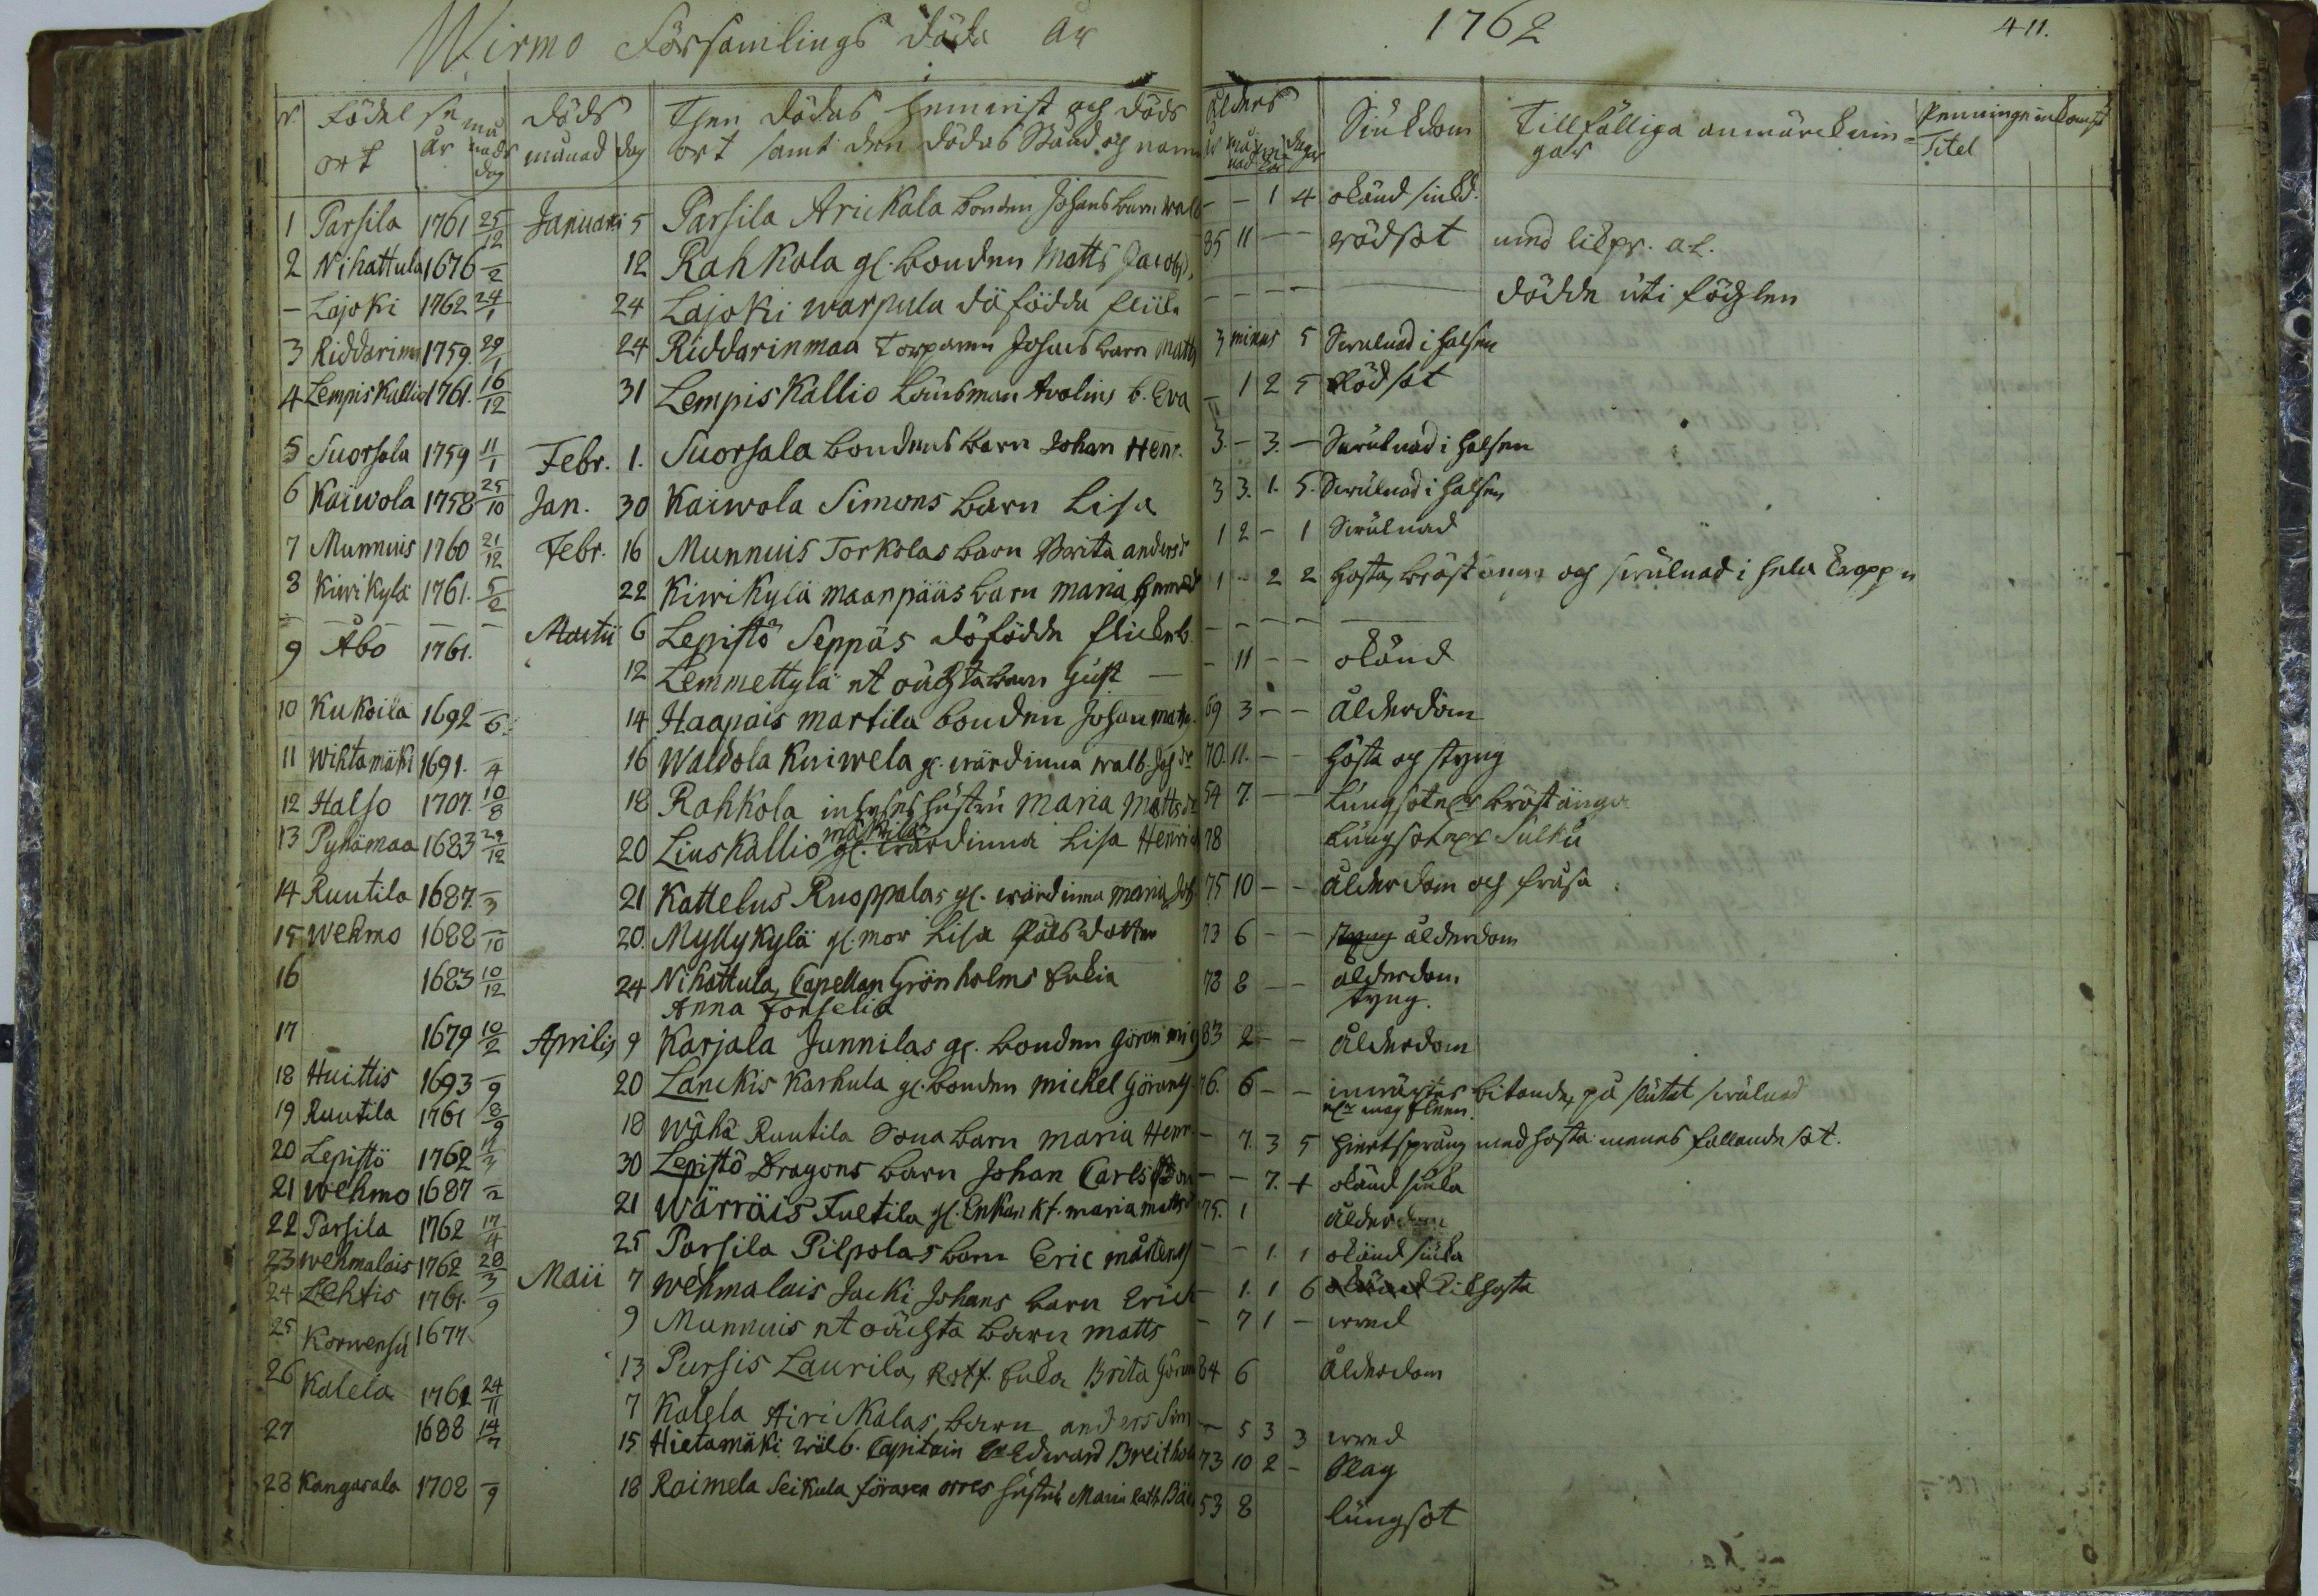 Wirmo Församlings döda År 1762 411.
N. Födelse ort år månads dag döds månad dag Then dödas hemvist och döds ort samt den dödas Stånd och namn Ålders år månad dagar Siukdom Tillfälliga anmärckningar Penninge inkomst Titel
1 Parsila 1761 25/12 Januari 5 Parsila Arickala bonden Johans barn Walb - - 1 4 okänd siukd.
2 Nihattula 1676 -/2 12 Rahkola gl. bonden Matts Jacobs. 85 11 - - rödsot
- Lajoki 1762 24/1 24 Lajoki warpula döfödda - - - - dödde uti födslen
3 Riddarinm 1759 29/1 24 Riddarinmaa Torparen Johans barn Matts 3 minus 5 Swulnad i halsen
4 Lempiskallio 1761. 16/12 31 Lempiskallio Länsman Avelins b. Eva - 1 2 5 Rödsot
5 Suorsala 1759 11/1 Febr. 1. Suorsala bondens barn Johan Henr. 3. - 3. - Swulnad i halsen
6 Kaiwola 1758 25/10 Jan. 30 Kaiwola Simons barn Lisa 3 3. 1. 5. Swulnad i halsen
7 Munnuis 1760 21/12 Febr. 16 Munnuis Torkolas barn Brita andersdr 1 2 - 1 Swulnad
8 Kiwikylä 1761. 5/2 22 Kiwikylä maanpääs barn maria 1 - 2 2 hosta, bröstånga och swulnad i hela kroppen
- - - - Martii 6 Lepistö Seppäs döfödde flickeb. - - - -
9 Åbo 1761. 12 Lemmettylä et oächta barn Gust - - 11 - - okänd
10 Kukoila 1692 -/6. 14 Haapais martila bonden Johan mats. 69 3 - - ålderdom
11 Wihtamäki 1691. -/4 16 Waldola Kuiwela gl. wärdinna walb. Johdr 70. 11. - - hosta och styng
12 Halso 1707. 10/8 18 Rahkola inhyses hustru Maria Mattsdr 54 7. - - Lungsot bröstånga
13 Pyhämaa 1683 29/12 20 Linskallio mäkilä gl. wärdinna Lisa Henrich 78 Lungsot
14 Ruutila 1687. -/3 21 Kattelus Ruoppalas gl. wärdinna Maria Joh 75 10 - - ålderdom och frusa
15 Wehmo 1688 -/10 20. Myllykylä gl. mor Lisa Pålsdotter 73 6 - - styng ålderdom
16 1683 10/12 24 Nihattula, Capellan Grönholms Enkia 78 8 - - ålderdom
Anna Forselia tyng.
17 1679 10/2 Aprilis 9 Karjala Junnilas gl. bonden Göran 83 2 - - ålderdom
18 Huittis 1693 -/9 20 Lanckis Karhula gl. bonden michel Görans 76. 6 - - inwärtes bitande, på slutet swulnad
19 Ruutila 1761 8/9 18 Wähä Ruutila Sona barn maria Henr. - 7. 3 5 hiertsprång med hosta. menas fallande sot.
20 Lepistö 1762 11/3 30 Lepistö Dragons barn Johan Carls Son - - 7. + okänd siuka
21 Wehmo 1687 -/2 21 Wärräis Fultila gl. Enkan Kf. maria matts 75. 1 ålderdom
22 Parsila 1762 17/4 25 Parsila Pilpolas barn Eric mårtens - - 1. 1 okänd siuka
23 Wehmalais 1762 28/3 Maii 7 Wehmalais Jacki Johans barn Erich - 1. 1 6 okänd kikhosta
24 Lehtis 1761. -/9 9 Munnuis et oächta barn matts - 7 1 - wred
25 Korwensu 1677. 13 Pursis Laurila, Rotf. Enka Brita Göran 84 6 Ålderdom
26 Kalela 1761 24/11 7 Kalela Airickalas barn anders Sim - 5 3 3 wred
27 1688 14/7 15 Hietamäki wälb. Capitain Edward Breitholt 73 10 2 - Slag
28 Kangasala 1708 -/9 18 Raimela Seikula föraren orres hustru Maria 53 8 lungsot